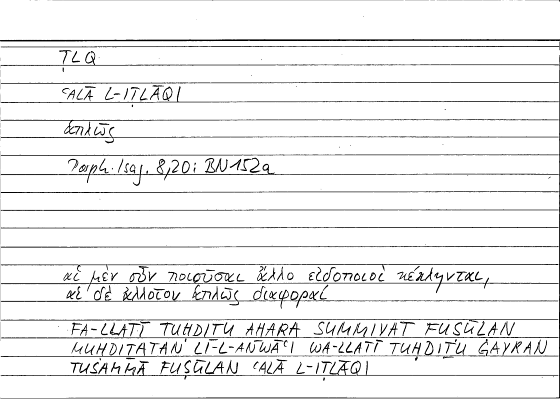 ṬLQ
ʿALĀ L-IṬLĀQI
ἁπλῶς
Porph. Isag. 8,20: BN 152a
αἱ μὲν οὖν ποιοῦσαι ἄλλο εἰδοποιοὶ κέκληνται,
αἱ δὲ ἀλλοῖον ἁπλῶς διαφοραί
FA-LLATĪ TUḤDIṮU AḪARA SUMMIYAT FUṢŪLAN
MUḤDIṮATAN LI-L-ANWĀʿI WA-LLATĪ TUḤDIṮU ĠAYRAN
TUSAMMĀ FUṢŪLAN ʿALĀ L-IṬLĀQI